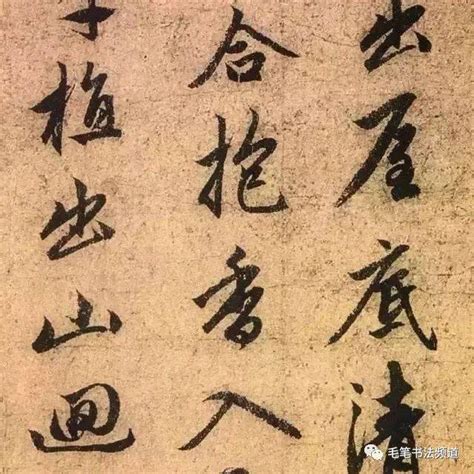 出厓底清
合抱香入
植出山迴
毛笔书法频道